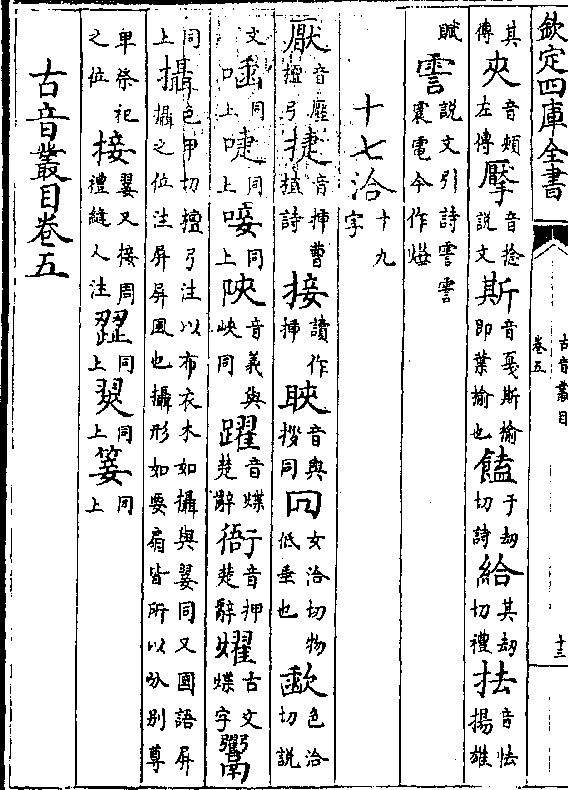 欽定四庫全書
古音叢目
卷五
十三
其傳夾音頰左傳擪音捻說文斯音戞斯榆即葉榆也饁于刼切詩給其刼切禮抾音怯揚雄
賦䨓說文引詩䨓䨓震電今作爗
十七洽十九字
厭音壓檀弓捷音揷曹植詩接讀作揷䀹音與㨗同囙女洽切物低垂也歃色洽切說
文臿同上啑同上唼同上陝音義與峽同躍音蝶楚辭衙音押楚辭嬥古文蝶字鬻
同上攝色甲切檀弓注以布衣木如攝與翣同又國語屏攝之位注屏屏風也攝形如要扇皆所以分別尊
卑祭祀之位接翣又接周禮縫人注翣同上翜同上箑同上
古音叢目卷五